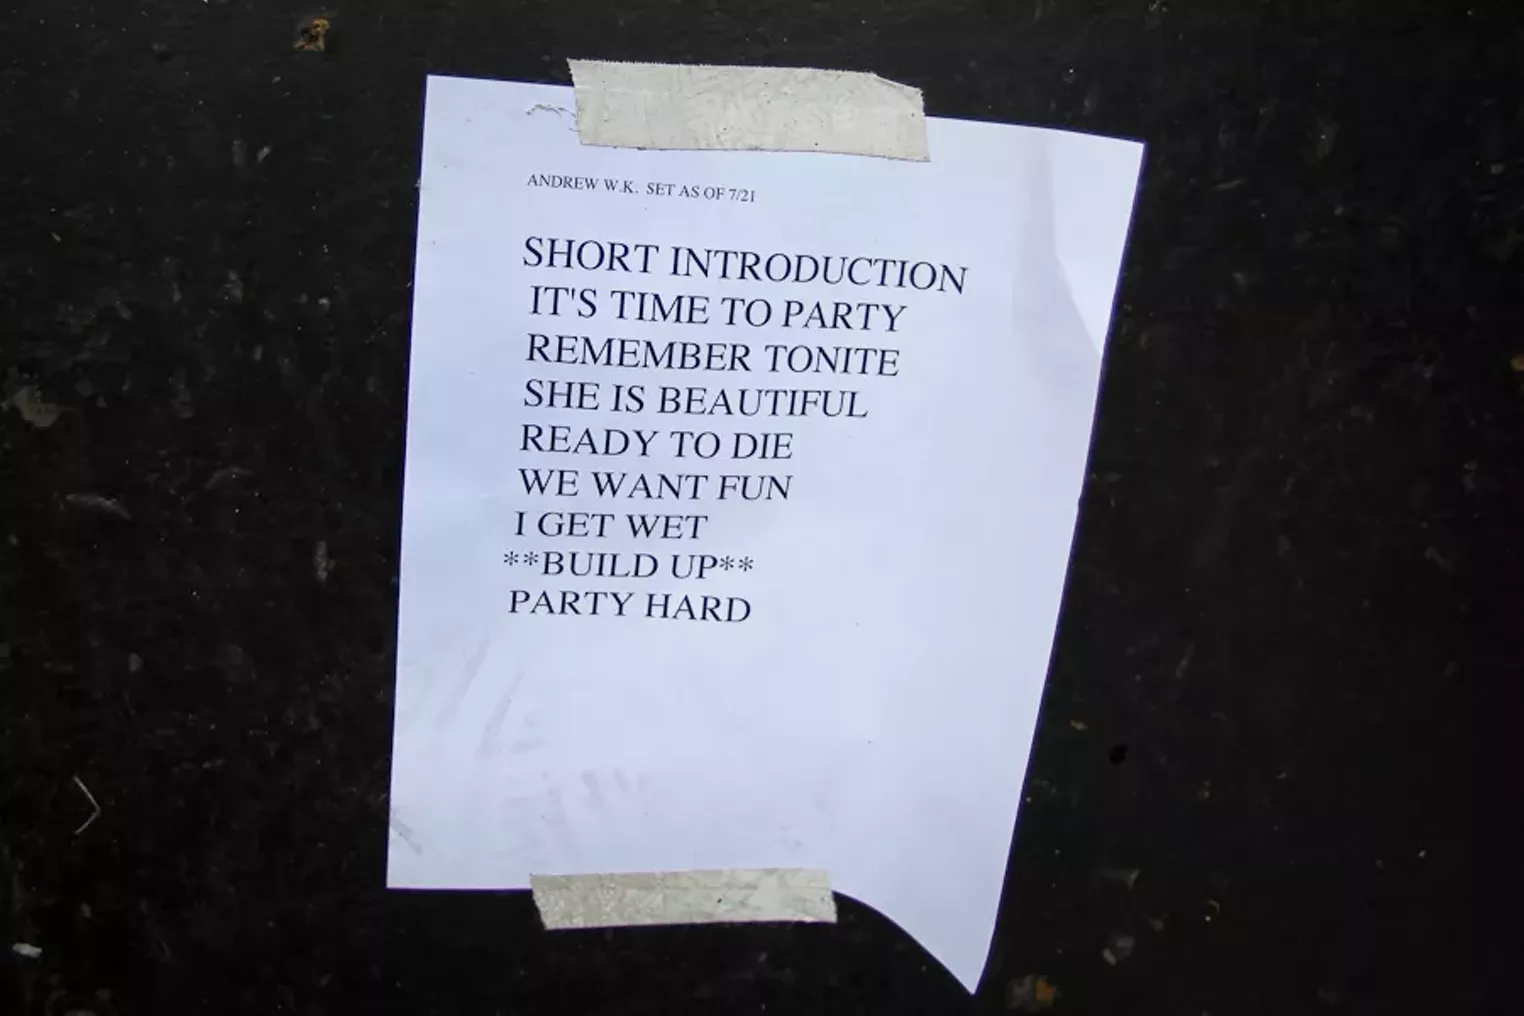 ANDREW W.K. SET AS OF 7/21
SHORT INTRODUCTION
IT'S TIME TO PARTY
REMEMBER TONITE
SHE IS BEAUTIFUL
READY TO DIE
WE WANT FUN
I GET WET
**BUILD UP**
PARTY HARD